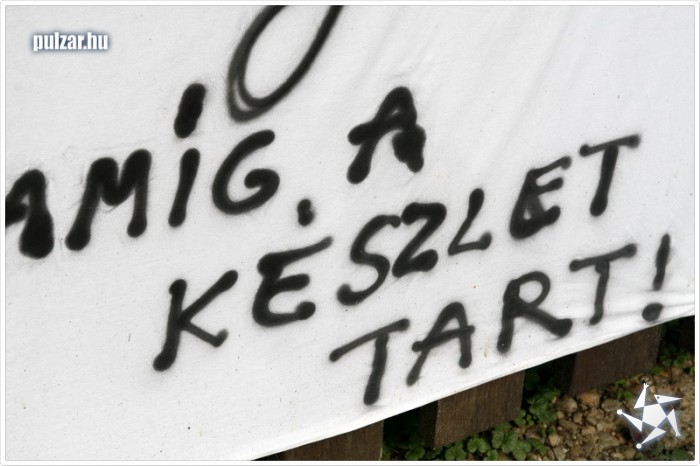 pulzar.hu
AMÍG A
KÉSZLET
TART!